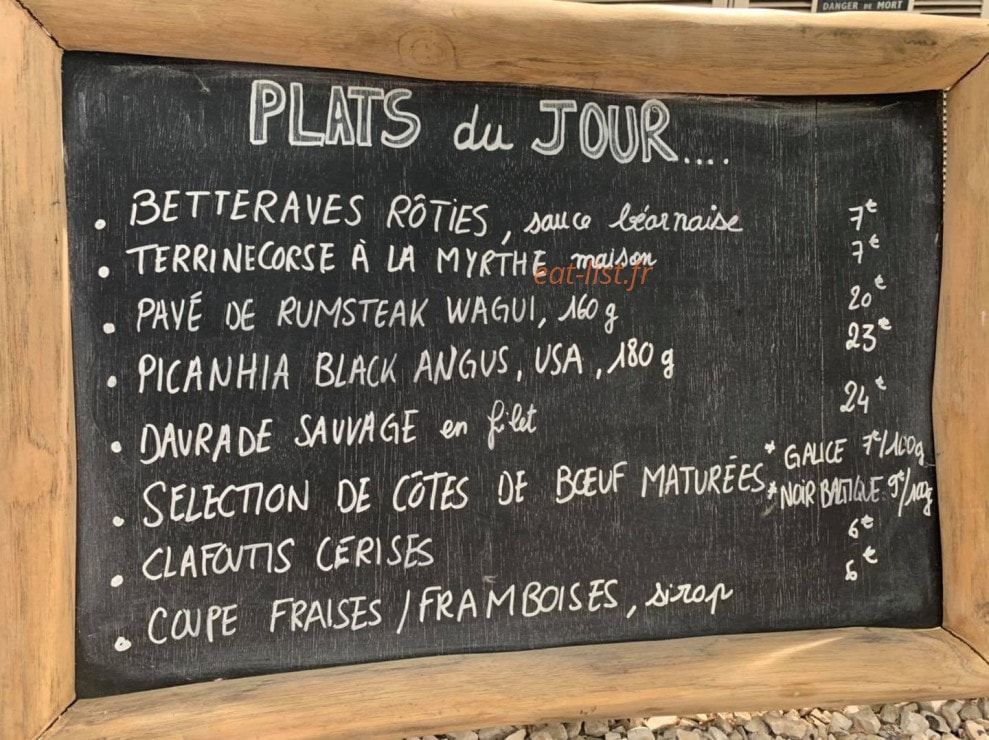 DANGER DE MORT
PLATS du JOUR....
• BETTERAVES RÔTIES, sauce béarnaise 7€
• TERRINECORSE À LA MYRTHE maison 7€
eat-list.fr
• PAVÉ DE RUMSTEAK WAGUI, 160 g 20€
• PICANHIA BLACK ANGUS, USA, 180 g 23€
• DAURADE SAUVAGE en filet 24€
• SELECTION DE CÔTES DE BŒUF MATURÉES * GALICE 7€/100g
* NOIR BALTIQUE 9€/100g
• CLAFOUTIS CERISES 6€
• COUPE FRAISES / FRAMBOISES, sirop 6€